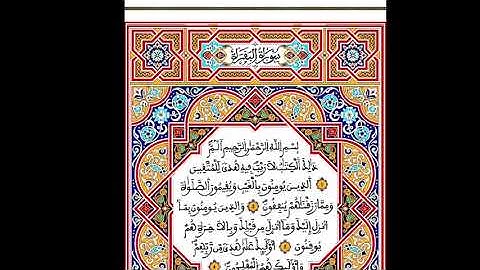 سورة البقرة
بسم الله الرحمن الرحيم الم
ذلك الكتاب لا ريب فيه هدى للمتقين
الذين يومنون بالغيب ويقيمون الصلوة
ومما رزقنهم ينفقون والذين يومنون بما
انزل إليك وما انزل من قبلك وبالاخرة هم
يوقنون اوليك على هدى من ربهم
واوليك هم المفلحون